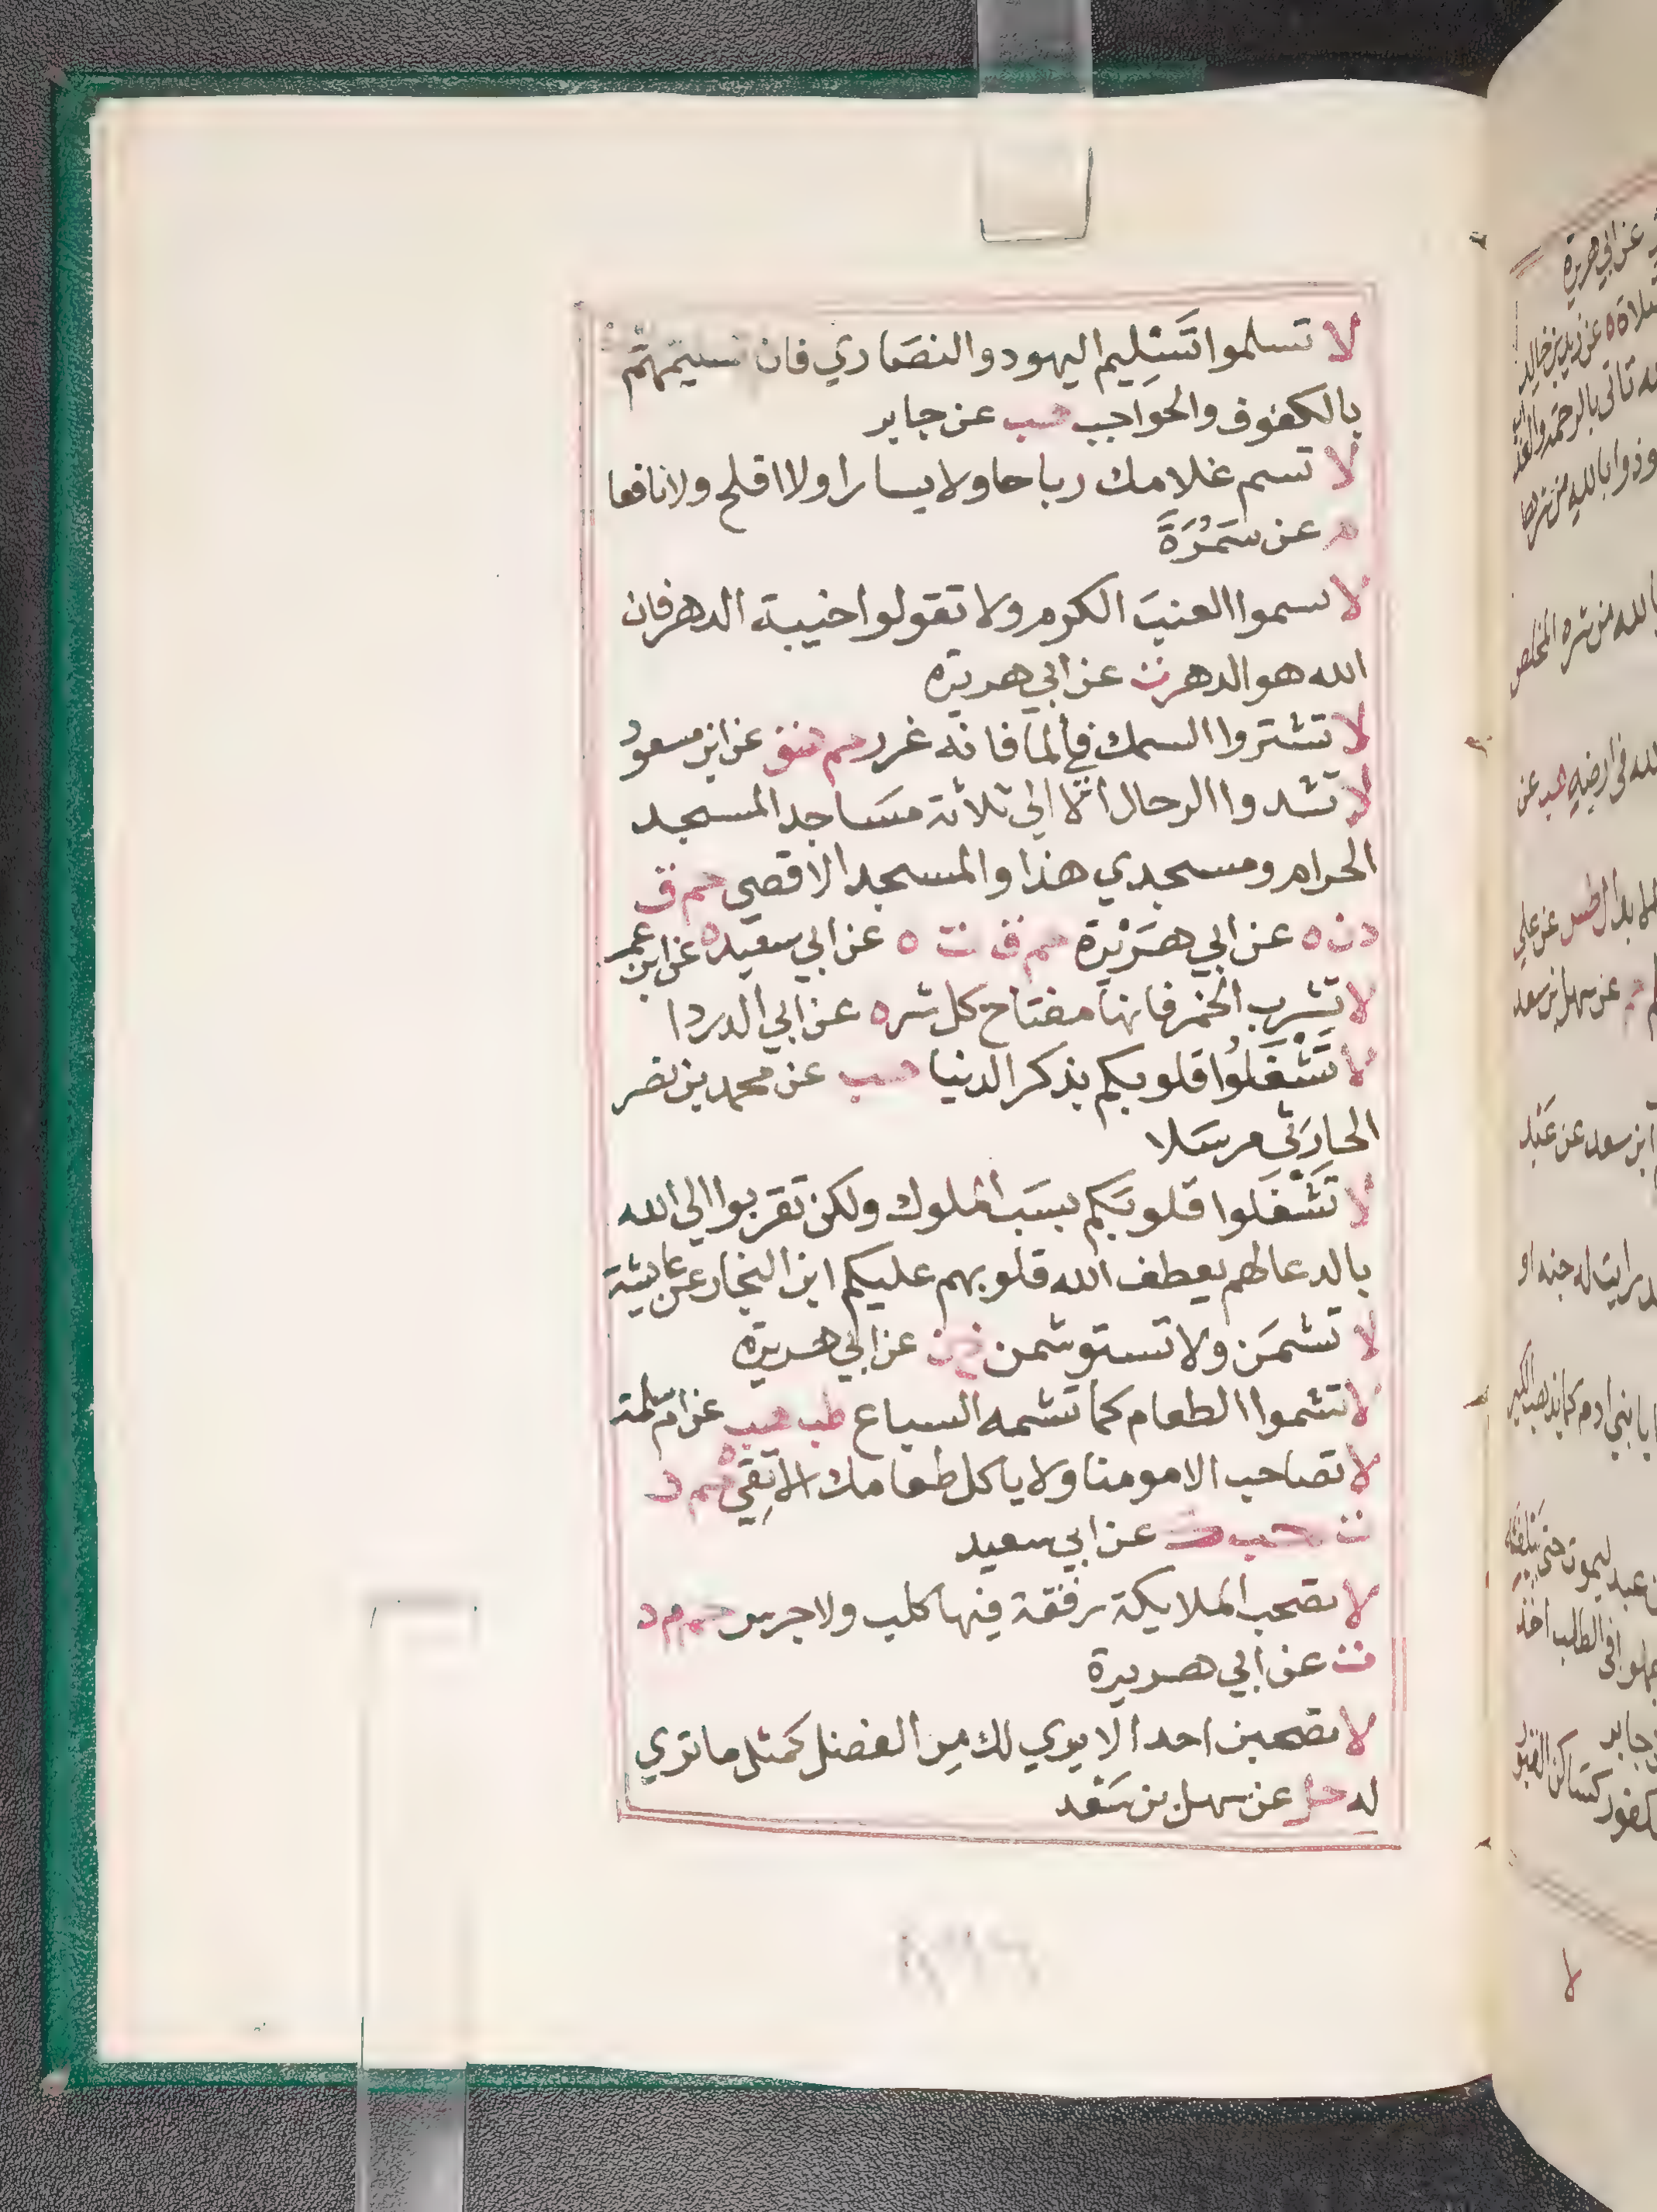 لا تسلموا تَسْلِيم اليهود والنصَاري فان تسليمهم
بالكفوف والحواجب هب عن جابر
لا تسم غلامك رباحا ولا يسارا ولا افلح ولا نافعا
م عن سَمُرَةَ
لا تسموا العنبَ الكرم ولا تقولوا خيبة الدهر فان
الله هو الدهر ق عن ابي هريرة
لا تشتروا السمك في المآ فانه غرر حم هق عن ابن مسعود
لا تشدوا الرحال الا الي ثلاثة مسَاجد المسجد
الحرام ومسجدي هذا والمسجد الاقصي حم ق
د ن ه عن ابي هرَيْرة حم ق ت ه عن ابي سعيد ه عن ابن عمر
لا تشرب الخمر فانها مفتاح كل شر ه عن ابي الدردا
لا تَشْغَلُوا قلوبكم بذكر الدنيا هب عن محمد بن نضر
الحارثي مرسَلا
لا تَشْغَلوا قلوبَكم بسَب الملوك ولكن تقربوا الي الله
بالدعا لهم يعطف الله قلوبهم عليكم ابن النجار عن عايشة
لا تشمَن ولا تستوشمن خ ن عن ابي هريرة
لا تشموا الطعام كما تشمه السباع طب هب عن ام سلمة
لا تصاحب الا مومنا ولا ياكل طعامك الا تقي حم د
ت حب ك عن ابي سعيد
لا تصحب الملايكة رفقة فيها كلب ولا جرس حم م د
ت عن ابي هريرة
لا تصحبن احدا لا يري لك مِن الفضل كمثل ما تري
له حل عن سهل بن سَعْد